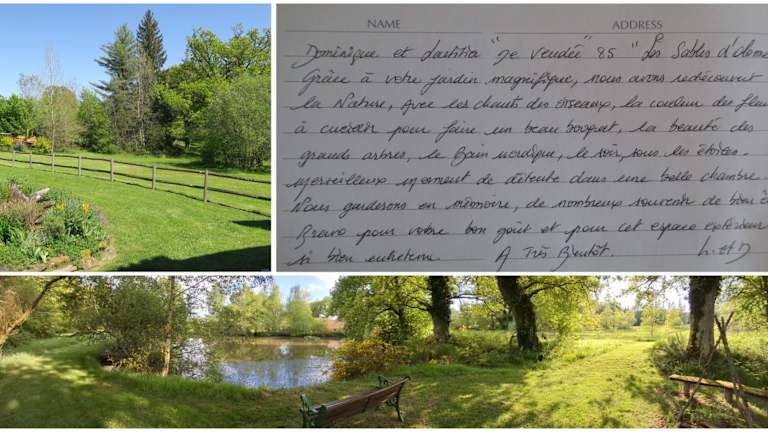 NAME ADDRESS
Dominique et Laetitia "De Vendée" 85 "Les Sables d'olonne
Grâce à votre jardin magnifique, nous avons redécouvert
la Nature, Avec les chants des oiseaux, la couleur des fleu
à cueillir pour faire un beau bouquet, la beauté des
grands arbres, le Bain nordique, le soir, sous les étoiles.
Merveilleux moment de détente dans une belle chambre.
Nous garderons en mémoire, de nombreux souvenir de bien ê
Bravo pour votre bon goût et pour cet espace extérieur
si bien entretenu. A Très Bientôt. L. et D